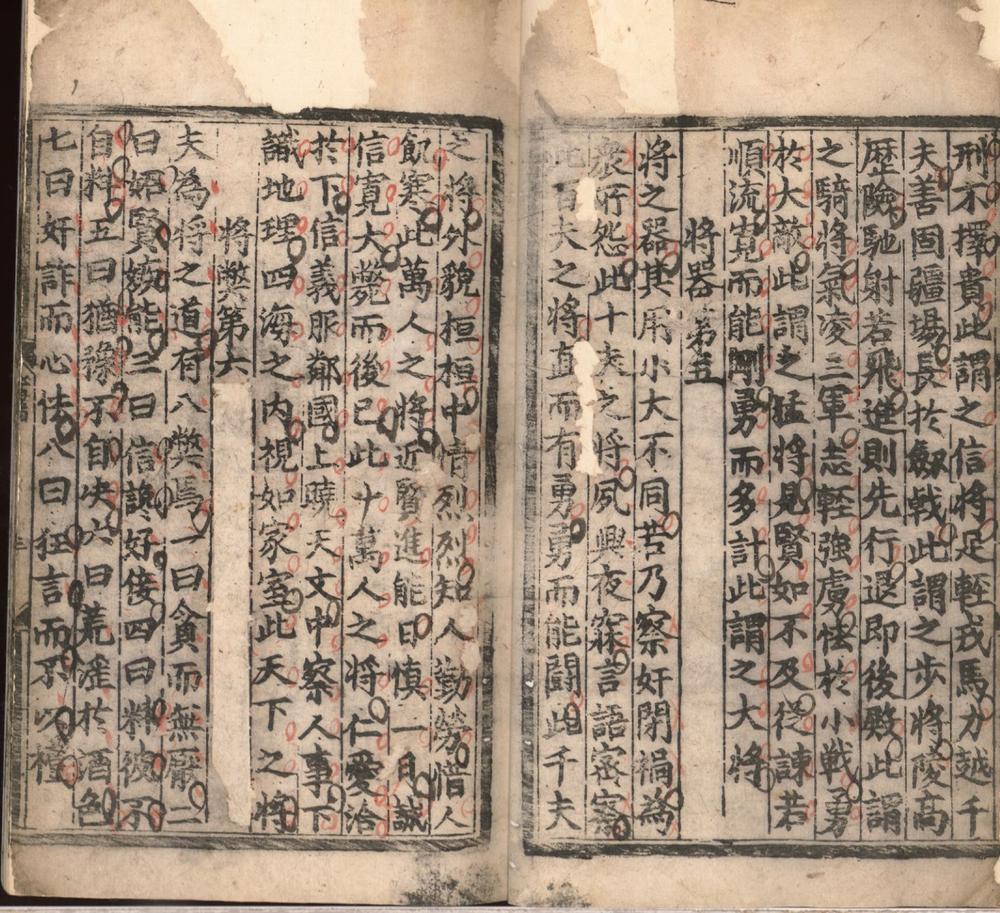 刑不擇貴此謂之信將足輕戎馬力越千
夫善固疆場長於劔戟此謂之步將陵高
歷險馳射若飛進則先行退即後殿此謂
之騎將氣凌三軍志輕強虜怯於小戰勇
於大敵此謂之猛將見賢如不及從諫若
順流寬而能剛勇而多計此謂之大將
將器第五
將之器其用小大不同若乃察奸閉禍為
衆所怨此十夫之將夙興夜寐言語密察
此百夫之將直而有勇勇而能鬪此千夫
之將外貌桓桓中情烈烈知人勤勞惜人
飢寒此萬人之將近賢進能日慎一日誠
信寬大斃而後已此十萬人之將仁愛洽
於下信義服鄰國上曉天文中察人事下
識地理四海之內視如家室此天下之將
將弊第六
夫為將之道有八弊焉一曰貪而無厭二
曰妬賢嫉能三曰信讒好佞四曰料彼不
自料五曰猶豫不自决六曰荒淫於酒色
七曰奸詐而心怯八曰狂言而不以禮